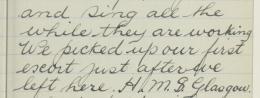 and sing all the
while they are working
We picked up our first
escort just after we
left here. H.M.S. Glasgow.